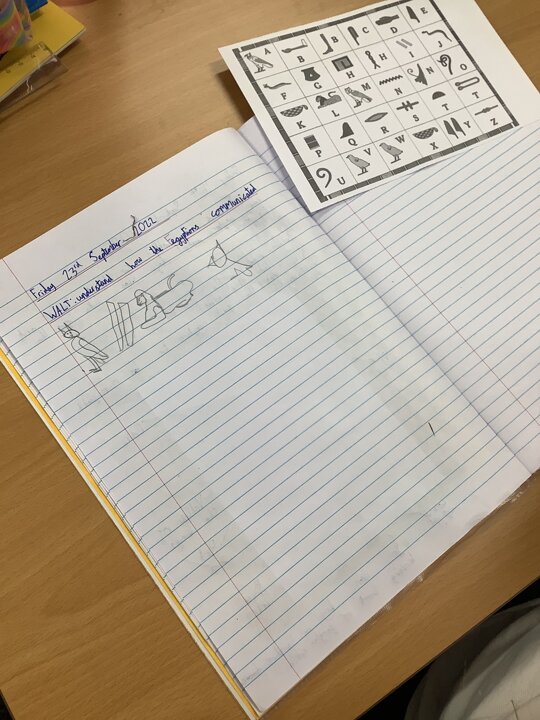 Friday 23rd September 2022
WALT: understand how the egyptians communicated
A B B C D E
F G H H I J
K L M N N O
P Q R S T T
U V W X Y Z